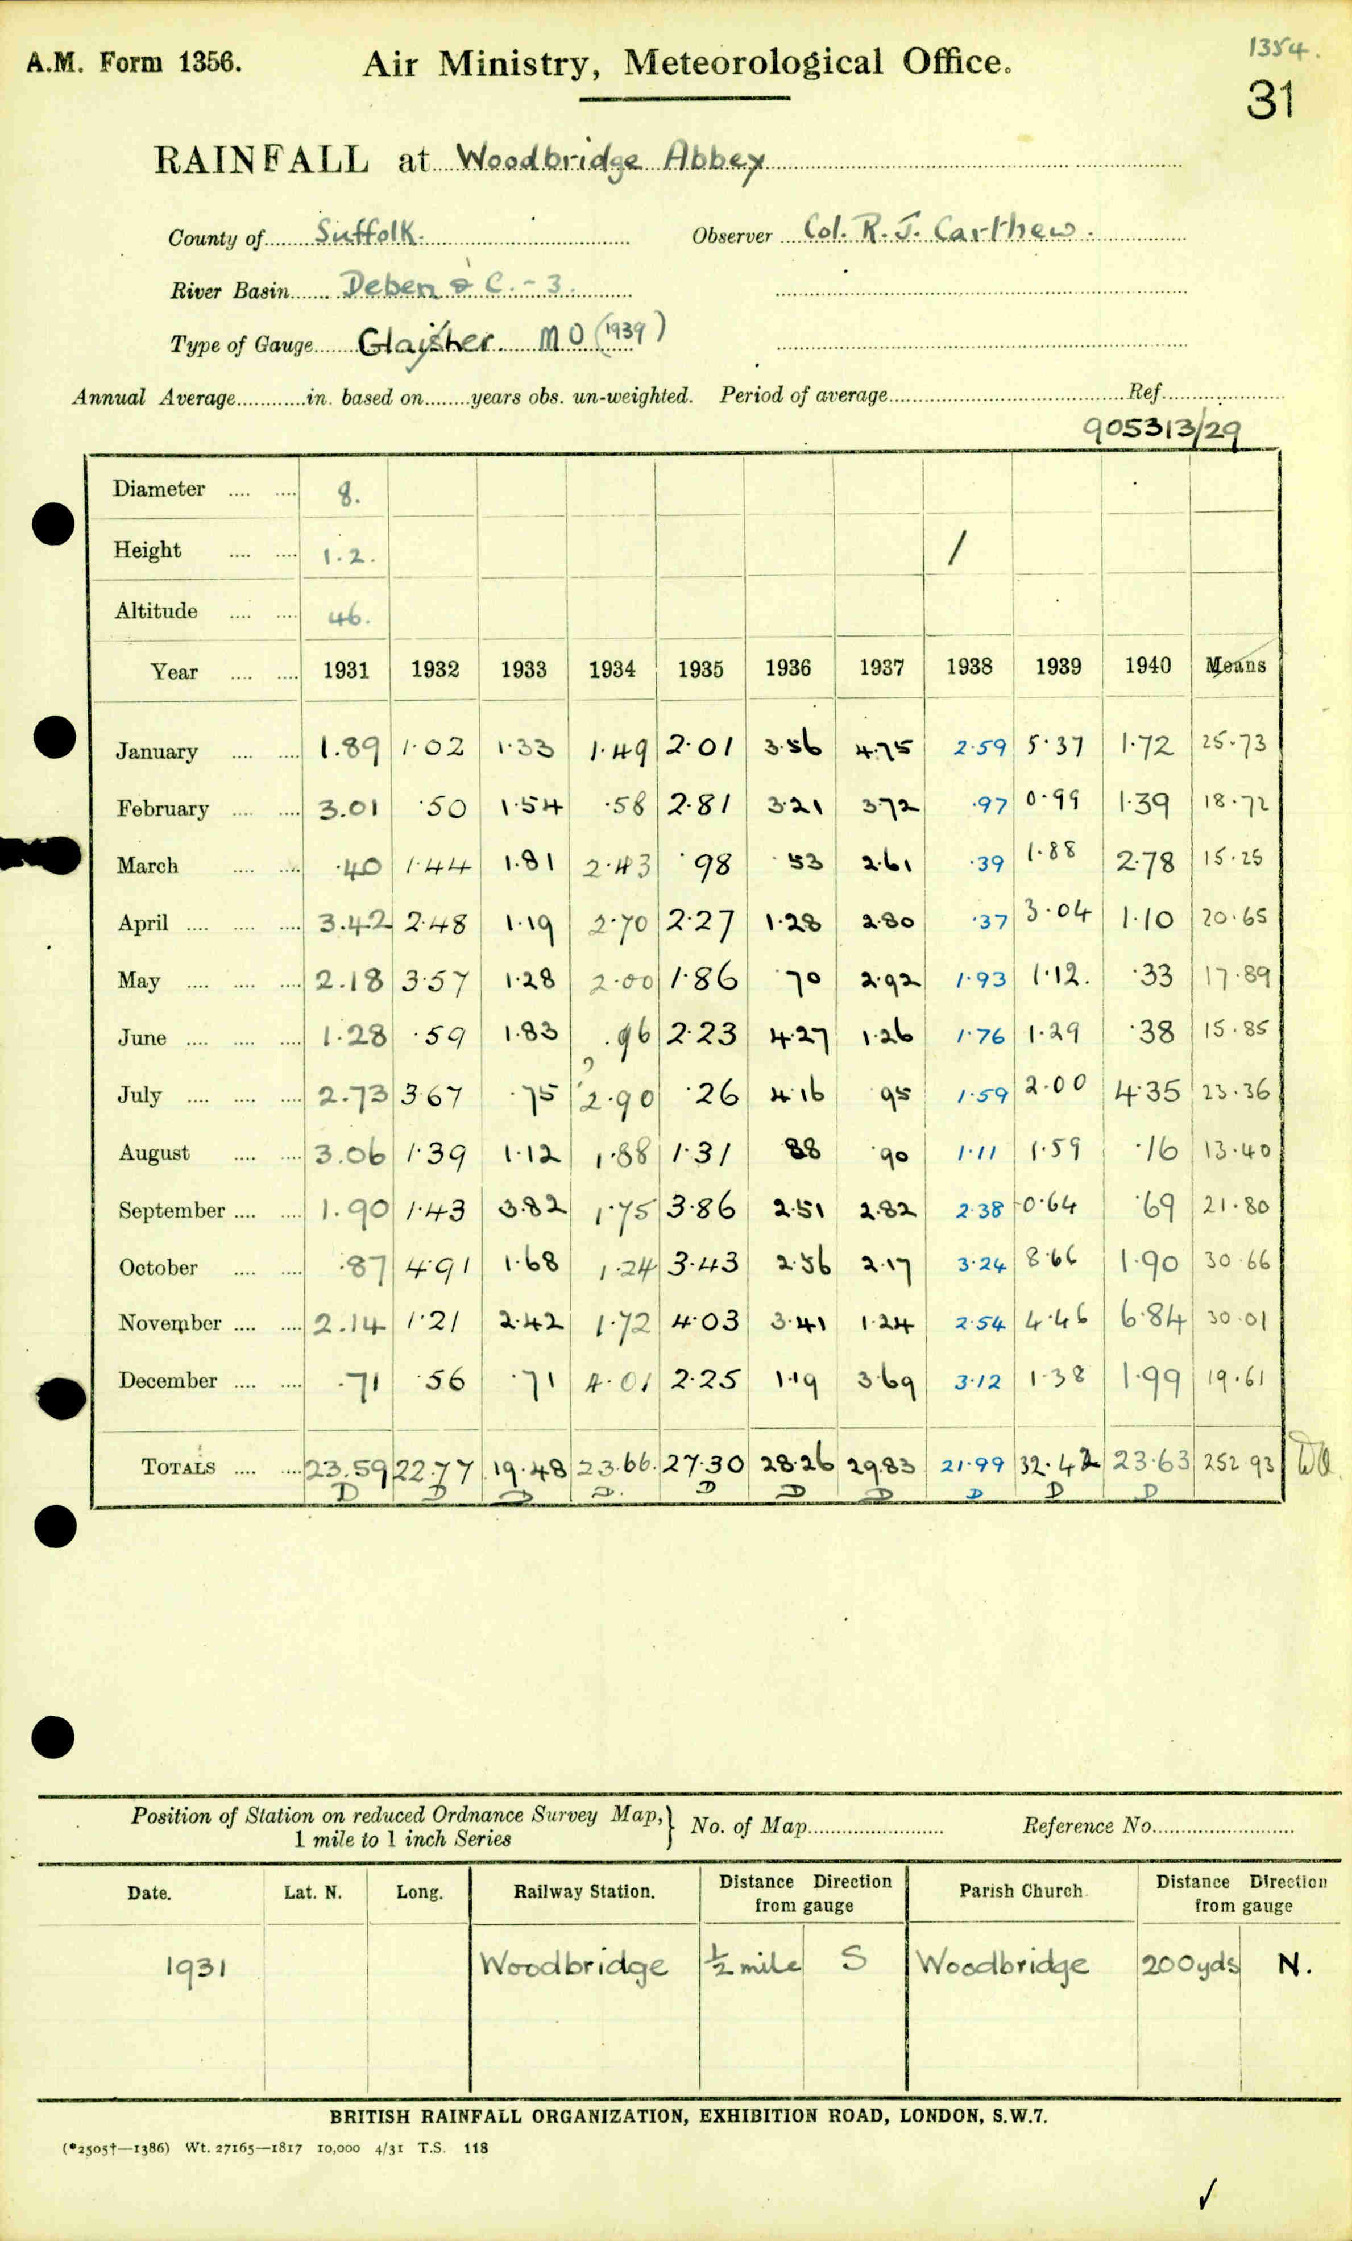 1354.
A.M. Form 1356. Air Ministry, Meteorological Office.
31
RAINFALL at Woodbridge Abbey
County of Suffolk. Observer Col. R. J. Carthew.
River Basin Deben & C. - 3.
Type of Gauge Glaisher. M O (1939)
Annual Average in. based on years obs. un-weighted. Period of average Ref.
905313/29
Diameter 8.
Height 1.2. /
Altitude 46.
Year 1931 1932 1933 1934 1935 1936 1937 1938 1939 1940 Means
January 1.89 1.02 1.33 1.49 2.01 3.56 4.75 2.59 5.37 1.72 25.73
February 3.01 .50 1.54 .58 2.81 3.21 3.72 .97 0.99 1.39 18.72
March .40 1.44 1.81 2.43 .98 .53 2.61 .39 1.88 2.78 15.25
April 3.42 2.48 1.19 2.70 2.27 1.28 2.80 .37 3.04 1.10 20.65
May 2.18 3.57 1.28 2.00 1.86 .70 2.92 1.93 1.12. .33 17.89
June 1.28 .59 1.83 .96 2.23 4.27 1.26 1.76 1.29 .38 15.85
July 2.73 3.67 .75 2.90 .26 4.16 .95 1.59 2.00 4.35 23.36
August 3.06 1.39 1.12 1.88 1.31 .88 .90 1.11 1.59 .16 13.40
September 1.90 1.43 3.82 1.75 3.86 2.51 2.82 2.38 0.64 .69 21.80
October .87 4.91 1.68 1.24 3.43 2.56 2.17 3.24 8.66 1.90 30.66
November 2.14 1.21 2.42 1.72 4.03 3.41 1.24 2.54 4.46 6.84 30.01
December .71 .56 .71 4.01 2.25 1.19 3.69 3.12 1.38 1.99 19.61
TOTALS 23.59 22.77 19.48 23.66. 27.30 28.26 29.83 21.99 32.42 23.63 252.93
D D D D. D D D D D D
Position of Station on reduced Ordnance Survey Map, } No. of Map Reference No.
1 mile to 1 inch Series
Date. Lat. N. Long. Railway Station. Distance Direction from gauge Parish Church Distance Direction from gauge
1931 Woodbridge ½ mile S Woodbridge 200yds N.
BRITISH RAINFALL ORGANIZATION, EXHIBITION ROAD, LONDON, S.W.7.
(*2505†—1386) Wt. 27165—1817 10,000 4/31 T.S. 118